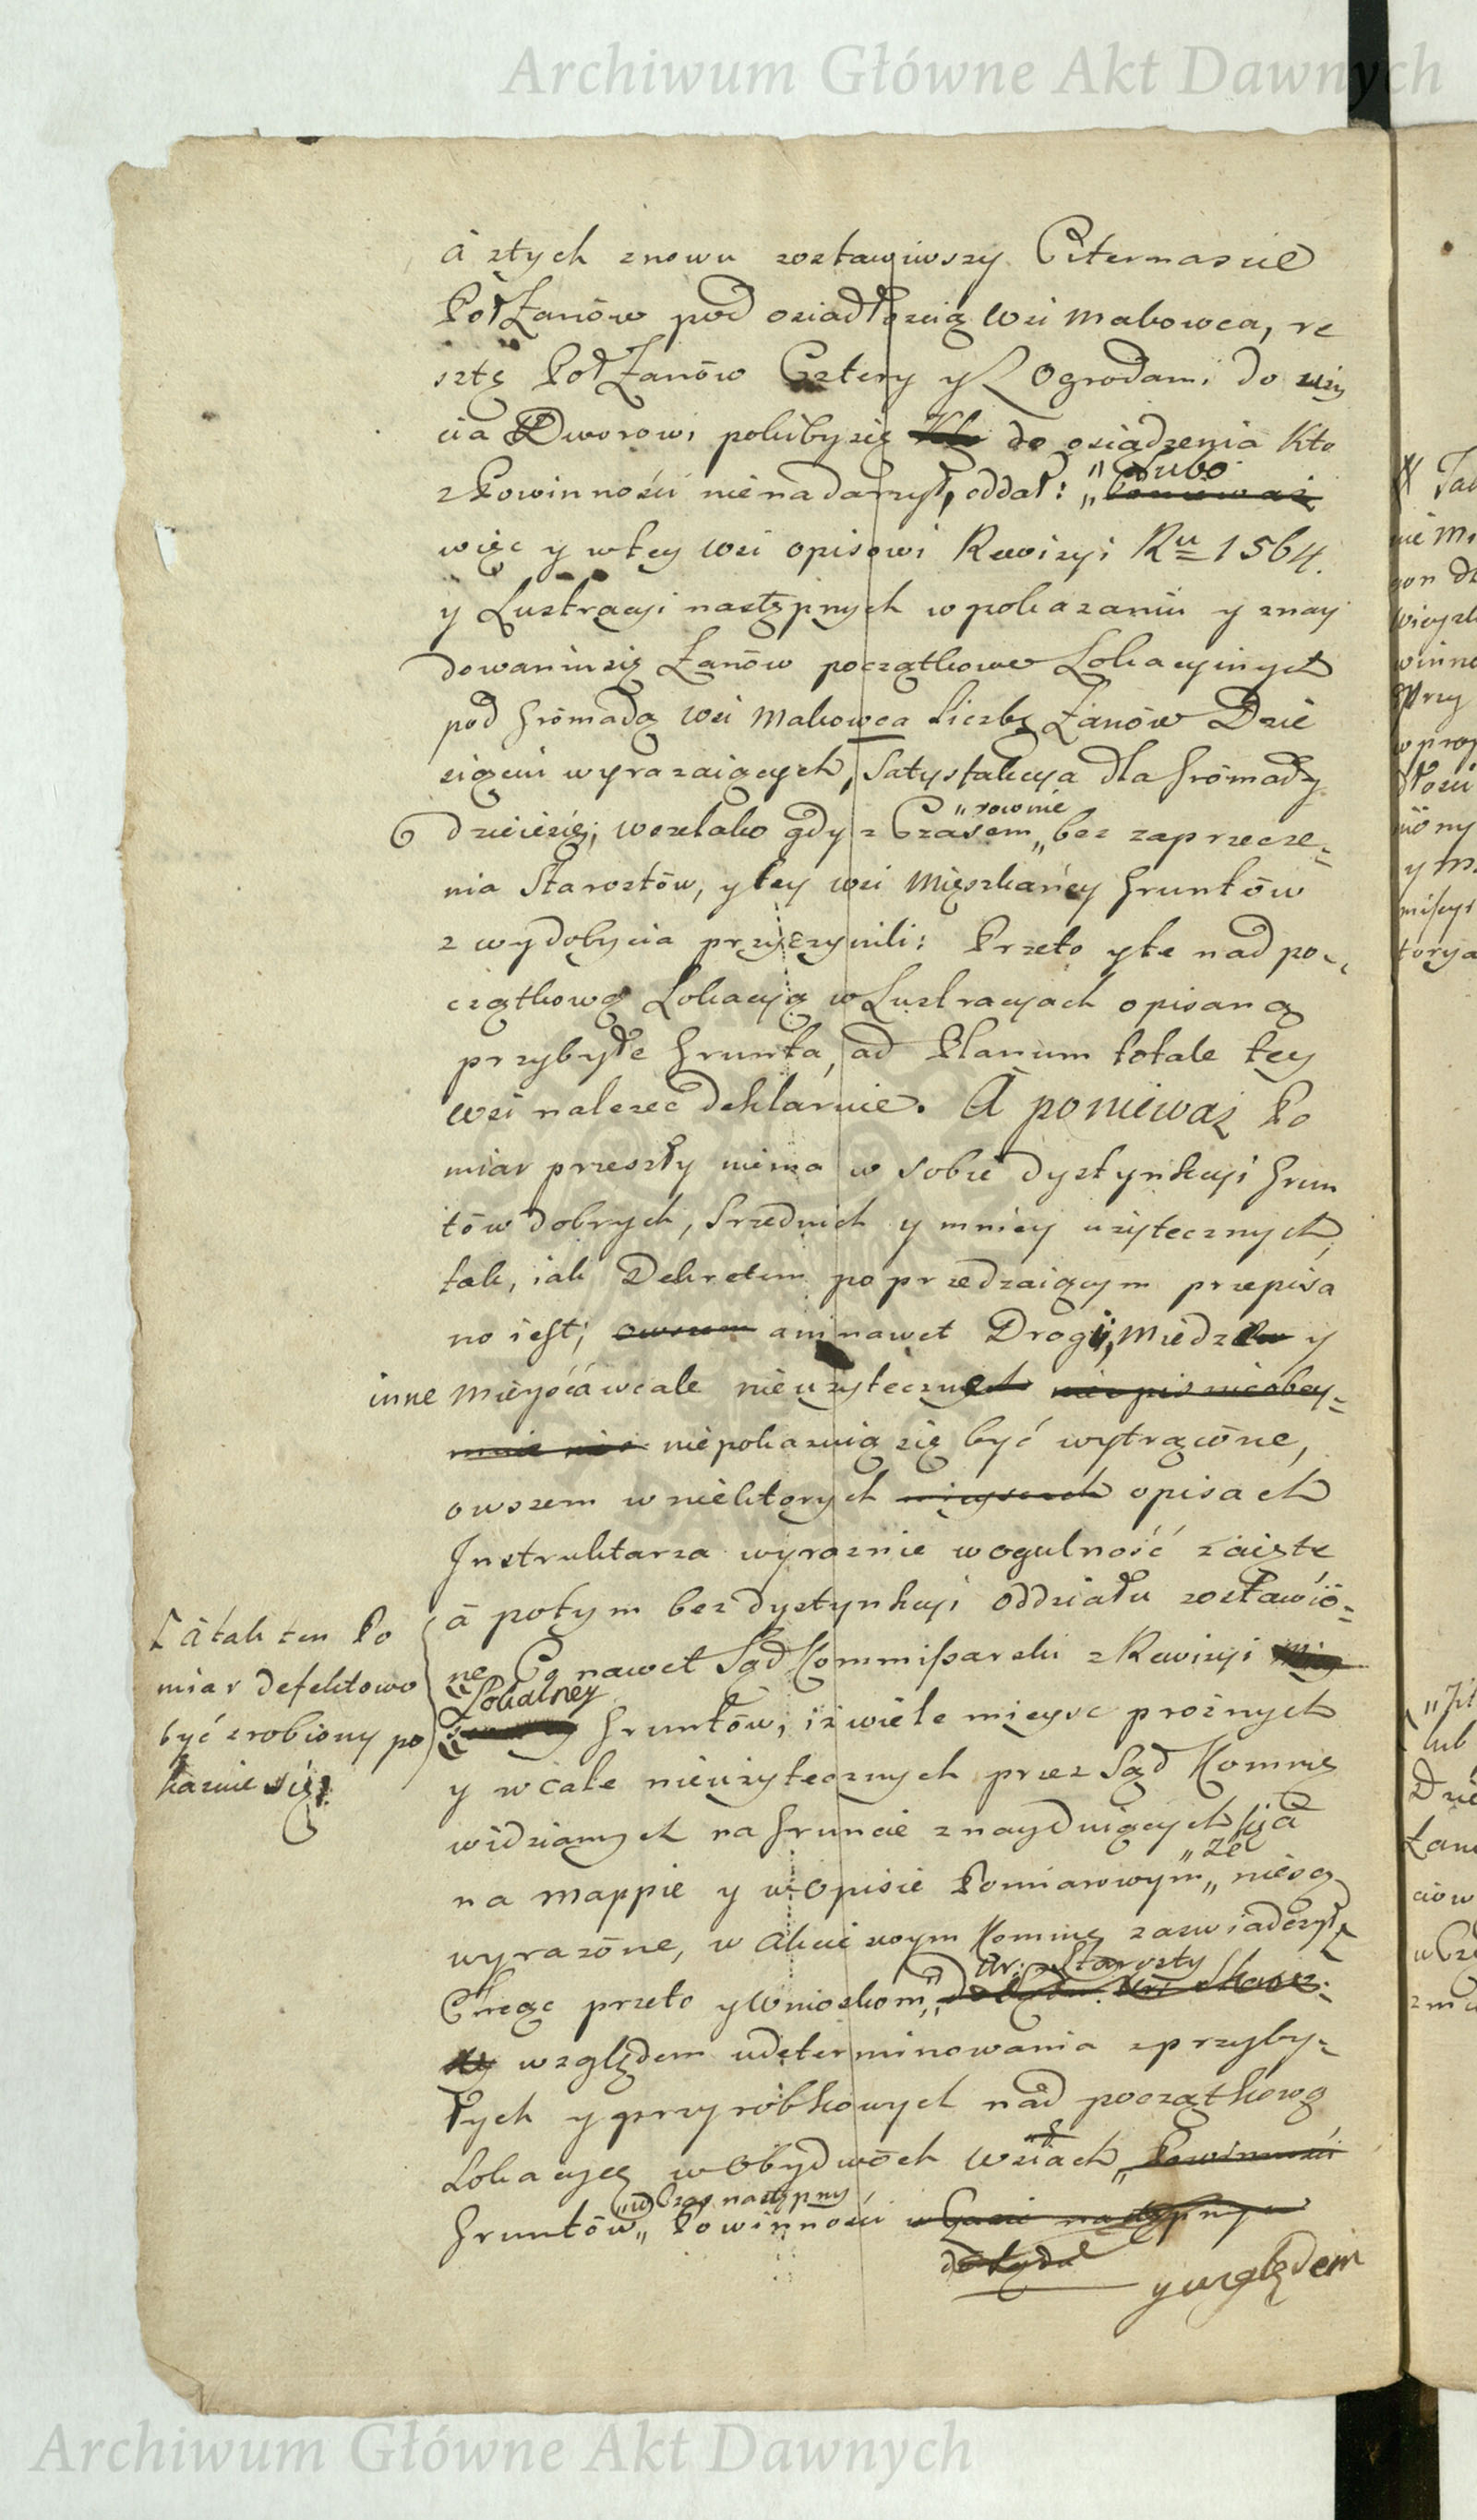 Archiwum Główne Akt Dawnych
á ztych znowu zostawiwszy Czternascie
PołŁanów pod osiadłoscią wsi Makowca, re
sztę PołŁanów Cztery y z Ogrodami do uży
cia Dworowi pokibysię do osiądzenia Kto
z Powinności nienadarzył, oddał: „Lubo
więc y wtey wsi opisowi Rewizyi Ru 1564.
y Lustracyi następnych w pokazaniu y znay
dowaniusię Łanów początkowo Lokacyinych
pod Gromadą wsi Makowca liczbę Łanów Dzie
sięciu wyrazaiących, Satysfakcya dla Gromady
dzieiesię; wszelako gdy z Czasem „rownie„ bez zaprzecze=
nia Starostów, y tey wsi Mięszkańcy Gruntów
z wydobycia przyczynili: Przeto y te nad po=
czątkową Lokacyą w Lustracyach opisaną
przybyłe Grunta, ad Planum totale tey
wsi nalezec deklaruie. A ponieważ Po
miar przeszły niema w sobie dystynkcyi Grun
tów dobrych, Srzednich y mniey uzytecznych,
tak, iak Dekretem poprzedzaiącym przepisa
no iest; owszem ani nawet Drogi, Miedze y
inne Mieyscá wcale nieuzyteczne nieopis nieobey=
muie niepokazuią się być wytrącone,
owszem w niektorych mieyscach opisach
Instruktarza wyraznie wogulność zaięte
á potym bez dystynkcyi oddziału zostawio=
ne Co nawet Sąd Kommissarski z Rewizyi
Lokalney Gruntów, iż wiele mieysc proznych
y wcale nieuzytecznych przez Sąd Kommis
widzianych na Gruncie znayduiących się á
na mappie y w Opisie Pomiarowym „ze„ niesą
wyrazone, w Akcie swym Kommis zaswiadczył
Chcąc przeto y Wnioskom „Ur: Starosty
względem udeterminowania z przyby=
łych y przyrobkowych nad początkową
Lokacyą w Obydwóch wsiach „Powinności
Gruntów „w Czas następny„ Powinności w Czasie następnym
dotyda
y względem
á tak ten Po
miar defektowo
być zrobiony po
kazuie się;
Archiwum Główne Akt Dawnych